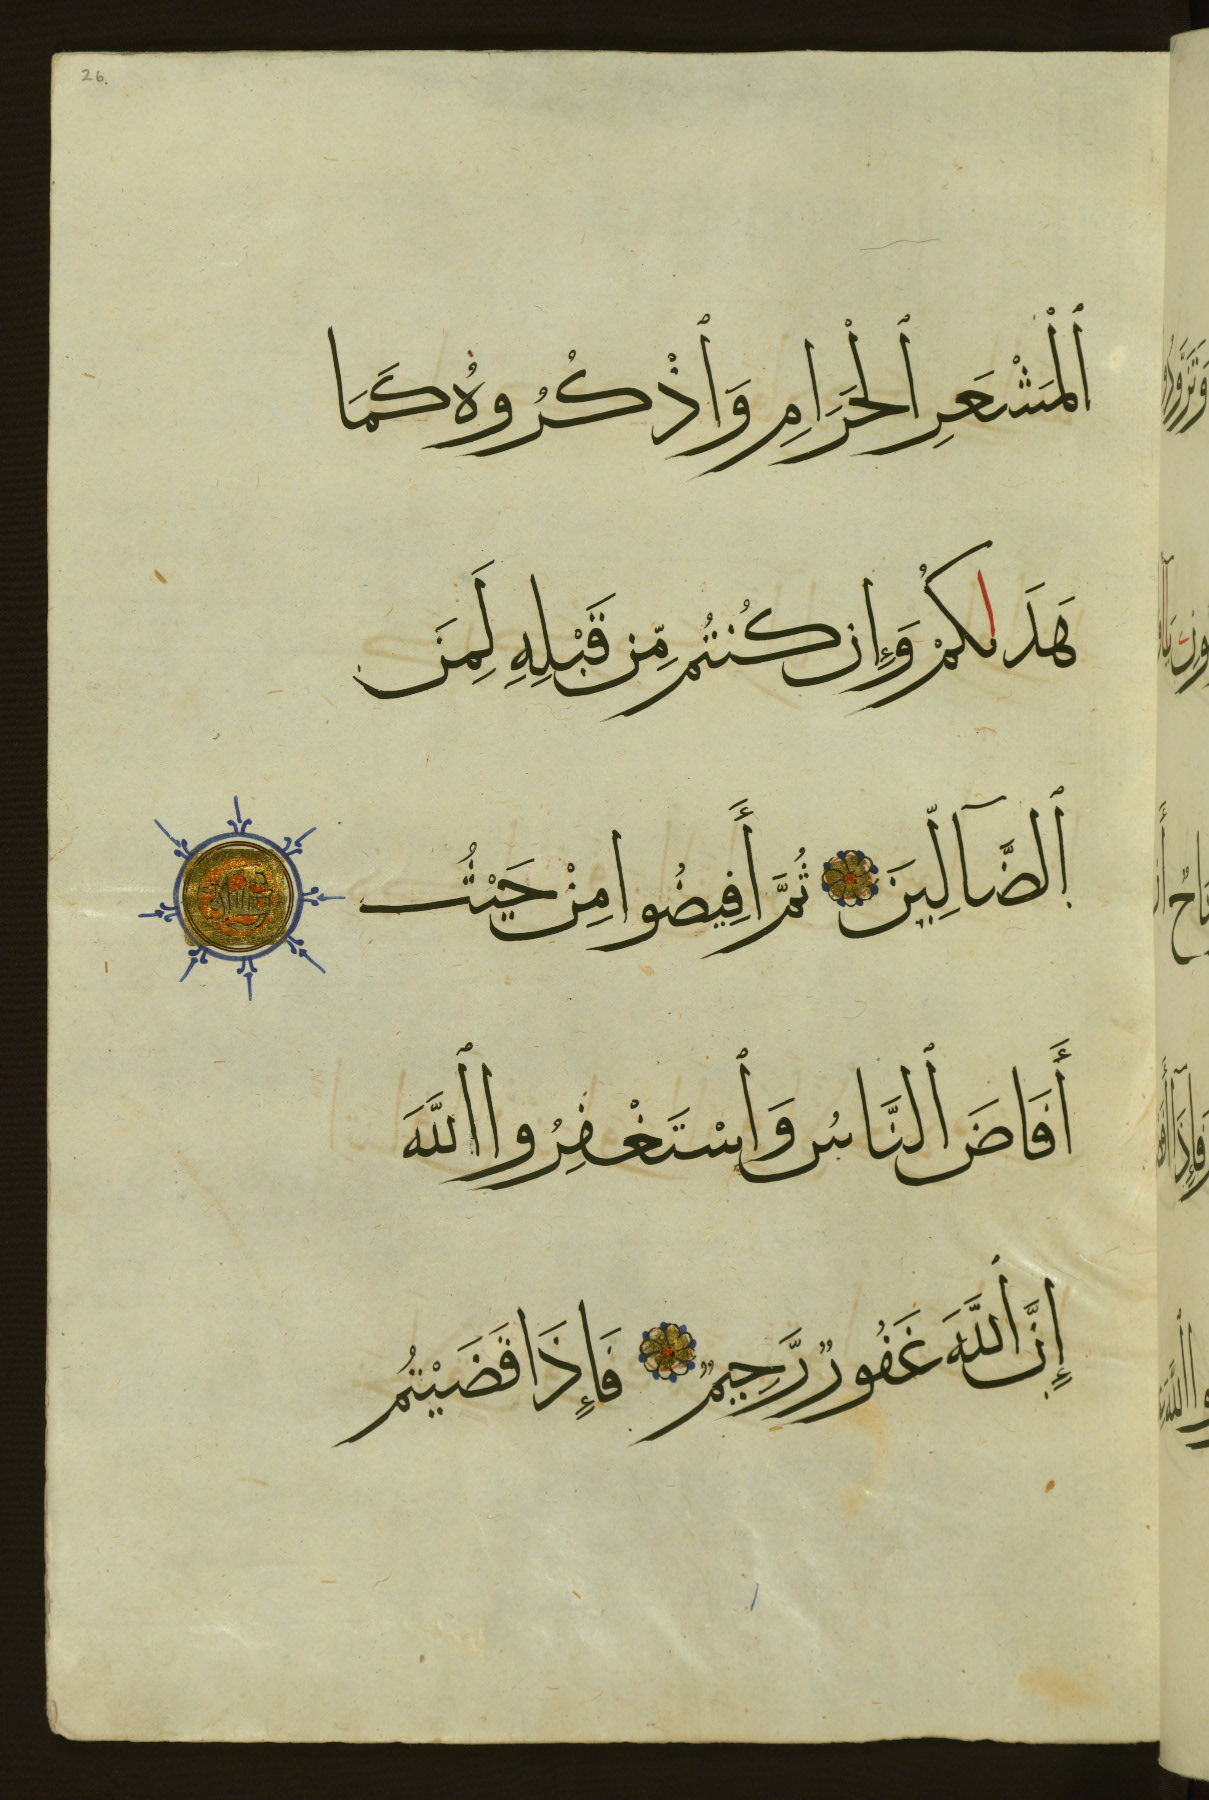 26.
ٱلْمَشْعَرِ ٱلْحَرَامِ وَٱذْكُرُوهُ كَمَا
هَدَىٰكُمْ وَإِن كُنتُم مِّن قَبْلِهِ لَمِنَ
ٱلضَّآلِّينَ ثُمَّ أَفِيضُوا مِنْ حَيْثُ
أَفَاضَ ٱلنَّاسُ وَٱسْتَغْفِرُوا ٱللَّهَ
إِنَّ ٱللَّهَ غَفُورٌ رَّحِيمٌ فَإِذَا قَضَيْتُم